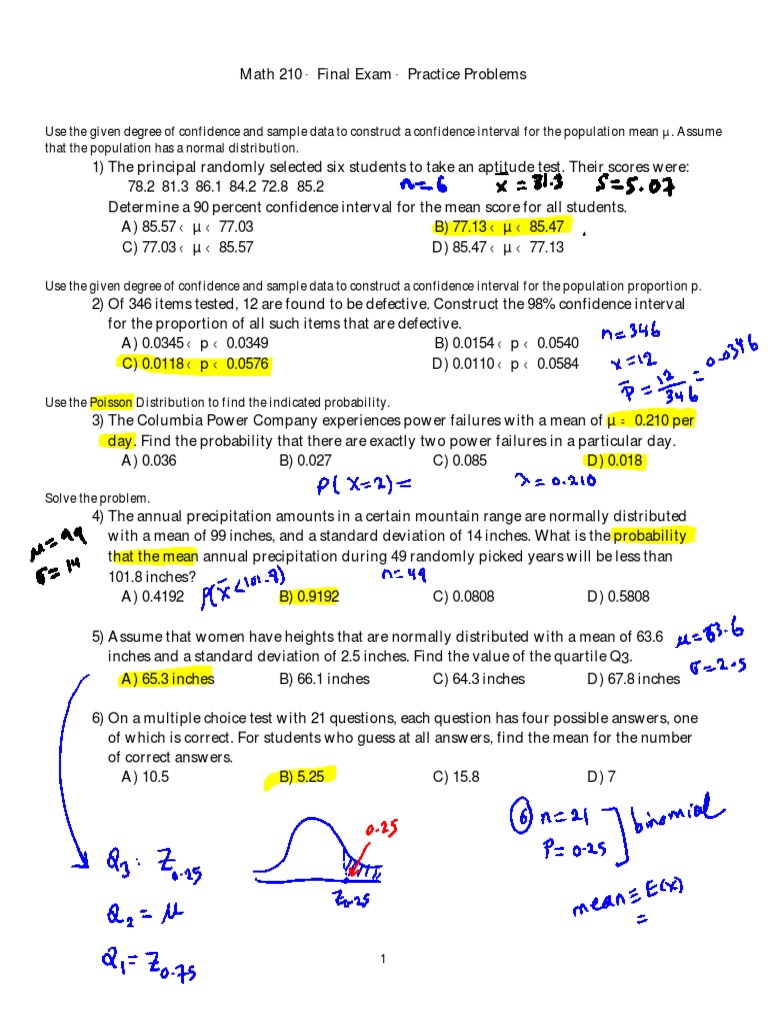 Math 210 · Final Exam · Practice Problems
Use the given degree of confidence and sample data to construct a confidence interval for the population mean μ. Assume
that the population has a normal distribution.
1) The principal randomly selected six students to take an aptitude test. Their scores were:
78.2 81.3 86.1 84.2 72.8 85.2
n=6 x̄ = 81.3 S=5.07
Determine a 90 percent confidence interval for the mean score for all students.
A) 85.57 < μ < 77.03 B) 77.13 < μ < 85.47
C) 77.03 < μ < 85.57 D) 85.47 < μ < 77.13
Use the given degree of confidence and sample data to construct a confidence interval for the population proportion p.
2) Of 346 items tested, 12 are found to be defective. Construct the 98% confidence interval
for the proportion of all such items that are defective.
A) 0.0345 < p < 0.0349 B) 0.0154 < p < 0.0540
C) 0.0118 < p < 0.0576 D) 0.0110 < p < 0.0584
n=346
x=12
p̄ = 12/346 = 0.0346
Use the Poisson Distribution to find the indicated probability.
3) The Columbia Power Company experiences power failures with a mean of μ = 0.210 per
day. Find the probability that there are exactly two power failures in a particular day.
A) 0.036 B) 0.027 C) 0.085 D) 0.018
P(X=2)= λ=0.210
Solve the problem.
4) The annual precipitation amounts in a certain mountain range are normally distributed
with a mean of 99 inches, and a standard deviation of 14 inches. What is the probability
that the mean annual precipitation during 49 randomly picked years will be less than
101.8 inches?
μ=99
σ=14
P(x̄<101.8) n=49
A) 0.4192 B) 0.9192 C) 0.0808 D) 0.5808
5) Assume that women have heights that are normally distributed with a mean of 63.6
inches and a standard deviation of 2.5 inches. Find the value of the quartile Q3.
μ=63.6
σ=2.5
A) 65.3 inches B) 66.1 inches C) 64.3 inches D) 67.8 inches
6) On a multiple choice test with 21 questions, each question has four possible answers, one
of which is correct. For students who guess at all answers, find the mean for the number
of correct answers.
A) 10.5 B) 5.25 C) 15.8 D) 7
Q3: Z0.25
Q2 = μ
Q1 = Z0.75
0.25
Z0.25
6 n=21
P=0.25
binomial
mean = E(x)
=
1